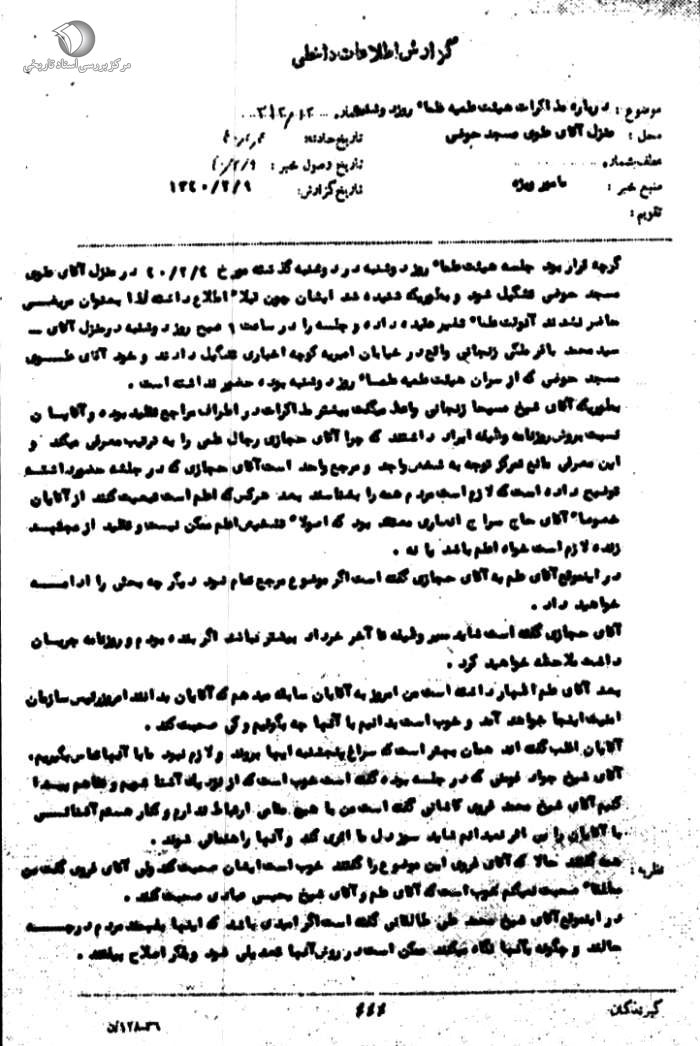 مرکز بررسی اسناد تاریخی
گزارش اطلاعات داخلی
موضوع : درباره مذاکرات هیئت علمیه علماء روز دوشنبه
محل : منزل آقای علوی مسجد حوضی
تاریخ حادثه:
عطف بشماره
تاریخ وصول خبر : ۴۰/۲/۹
منبع خبر : مامور ویژه
تاریخ گزارش: ۱۳۴۰/۲/۹
تقویم :
گرچه قرار بود جلسه هیئت علماء روز دوشنبه در دوشنبه گذشته مورخ ۴۰/۲/۴ در منزل آقای علوی
مسجد حوضی تشکیل شود و بطوریکه شنیده شد ایشان چون قبلا اطلاع داشته لذا بعنوان مریضی
حاضر نشدند آنوقت علماء تغییر عقیده داده و جلسه را در ساعت ۹ صبح روز دوشنبه در منزل آقای –
سید محمد باقر ملکی زنجانی واقع در خیابان امیریه کوچه اخباری تشکیل دادند و خود آقای علوی
مسجد حوضی که از سران هیئت علمیه علماء روز دوشنبه بوده حضور نداشته است .
بطوریکه آقای شیخ مسیحا زنجانی واعظ میگفت بیشتر مذاکرات در اطراف مراجع تقلید بوده و آقایان
نسبت بروش روزنامه وظیفه ایراد داشتند که چرا آقای حجازی رجال علمی را به ترتیب معرفی میکند و
این معرفی مانع تمرکز توجه به شخص واحد و مرجع واحد است آقای حجازی که در جلسه حضور داشته
توضیح داده است که لازم است مردم همه را بشناسند بعد هرکس که اعلم است تبعیت کنند از آقایان
خصوصاً آقای حاج سراج انصاری معتقد بود که اصولا تشخیص اعلم ممکن نیست و تقلید از مجتهد
زنده لازم است خواه اعلم باشد یا نه .
در اینموقع آقای علم به آقای حجازی گفته است اگر موضوع مرجع تمام شود دیگر چه بحثی را ادامه
خواهید داد .
آقای حجازی گفته است شاید سیر وظیفه تا آخر خرداد بیشتر نباشد اگر بنده بودم و روزنامه جریان
داشت ملاحظه خواهید کرد .
بعد آقای علم اظهار داشته است من امروز به آقایان سابقه میدهم که آقایان بدانند امروز رئیس سازمان
امنیت اینجا خواهند آمد و خوب است بدانیم با آنها چه بگوئیم و کی صحبت کند .
آقایان اغلب گفته اند همان بهتر است که سراغ پنجشنبه ایها بروند و لازم نبود ما با آنها تماس بگیریم .
آقای شیخ جواد که در جلسه بوده گفته است خوب است که از نزدیک آشنا شویم و تفاهم پیدا
کنیم آقای شیخ محمد غروی کاشانی گفته است من با هیچ مقامی ارتباط ندارم و کنار هستم آشنائی
با آقایان را بی اثر نمیدانم شاید سوز دل ما اثری کند و آنها راهنمائی شوند .
نظریه :
همه گفتند حالا که آقای غروی این موضوع را گفتند خوب است ایشان صحبت کند ولی آقای غروی گفت من
صحبت نمیکنم خوب است که آقای علم و آقای شیخ صحبت کند .
در اینموقع آقای شیخ محمد علی طالقانی گفته است اگر امیدی باشد که اینها بفهمند مردم در چه
حالند و چگونه به آنها نگاه میکنند ممکن است در روش آنها تعدیلی شود و بفکر اصلاح بیفتند .
گیرندگان
۴۴۴
۱۲۸-۳۶/ن